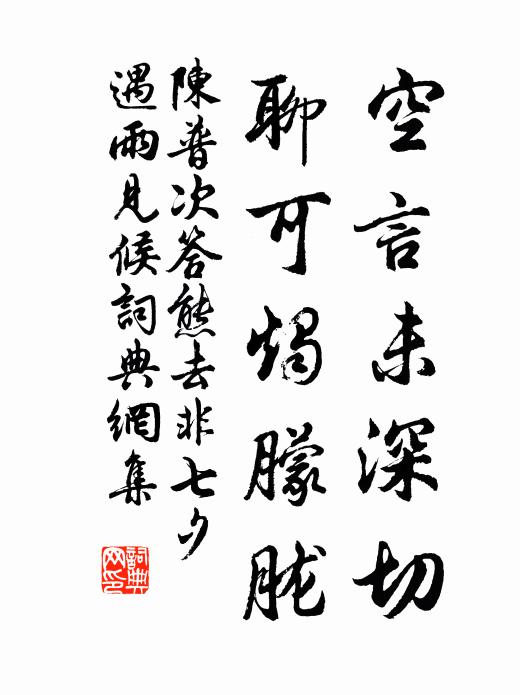 空言未深切
聊可燭朦朧
陳普次答熊去非七夕
遇雨見候詞典網集
詞典網印